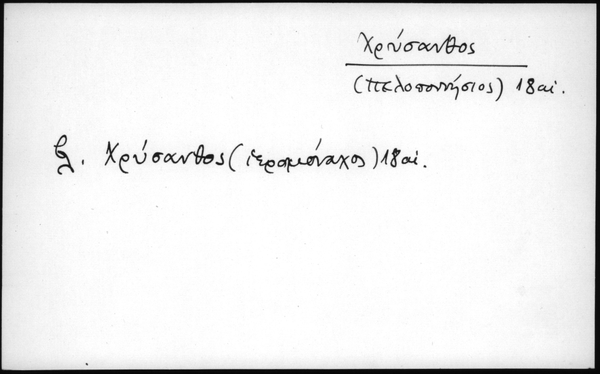 Χρύσανθος
(Πελοποννήσιος) 18 αἰ.
βλ. Χρύσανθος (ἱερομόναχος) 18 αἰ.